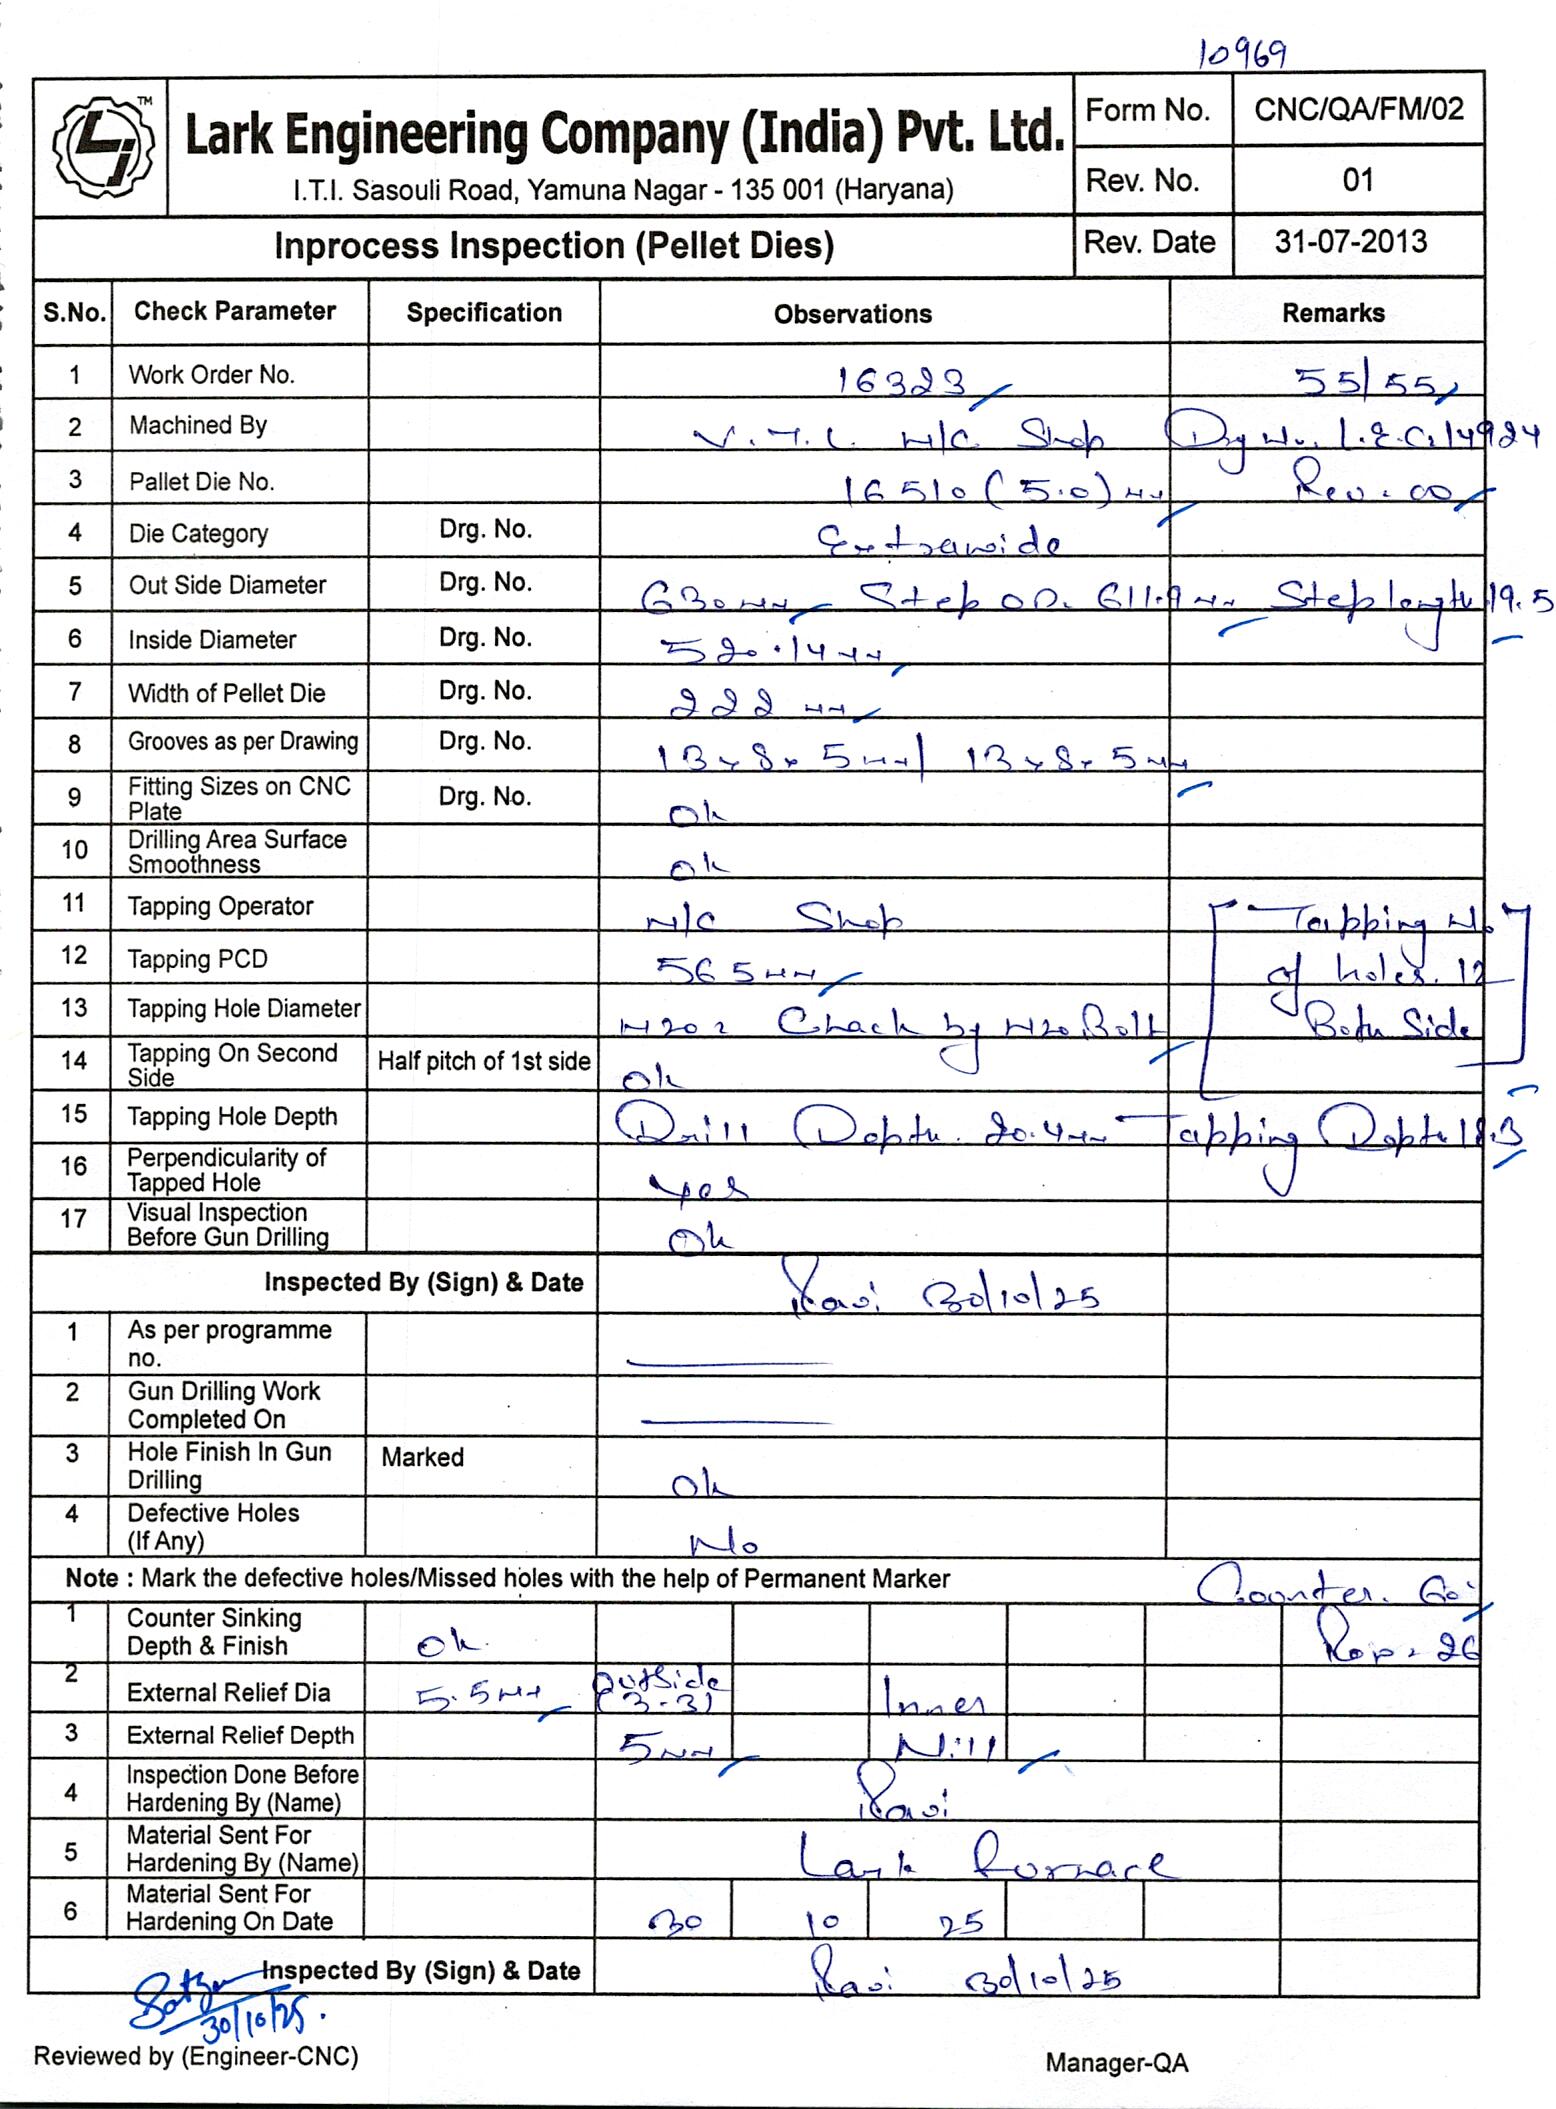 10969
LJ TM
Lark Engineering Company (India) Pvt. Ltd.
I.T.I. Sasouli Road, Yamuna Nagar - 135 001 (Haryana)
Form No. CNC/QA/FM/02
Rev. No. 01
Inprocess Inspection (Pellet Dies) Rev. Date 31-07-2013
S.No. Check Parameter Specification Observations Remarks
1 Work Order No. 16323 55/55
2 Machined By V.T.L. M/C Shop Drg No. L.E.C./4924
3 Pallet Die No. 16510 (5.0) mm Rev. 00
4 Die Category Drg. No. Extrawide
5 Out Side Diameter Drg. No. 630mm Step OD. 611.9mm Step length 19.5
6 Inside Diameter Drg. No. 520.14mm
7 Width of Pellet Die Drg. No. 222 mm
8 Grooves as per Drawing Drg. No. 13x8x5mm/ 13x8x5mm
9 Fitting Sizes on CNC Plate Drg. No. Ok
10 Drilling Area Surface Smoothness Ok
11 Tapping Operator M/C Shop Tapping No.
12 Tapping PCD 565mm of holes. 12
13 Tapping Hole Diameter M20 Check by M20 Bolt Both Side
14 Tapping On Second Side Half pitch of 1st side Ok
15 Tapping Hole Depth Drill Depth. 20.4mm Tapping Depth 18.3
16 Perpendicularity of Tapped Hole Yes
17 Visual Inspection Before Gun Drilling Ok
Inspected By (Sign) & Date Ravi 30/10/25
1 As per programme no.
2 Gun Drilling Work Completed On
3 Hole Finish In Gun Drilling Marked Ok
4 Defective Holes (If Any) No
Note : Mark the defective holes/Missed holes with the help of Permanent Marker Counter. 60°
1 Counter Sinking Depth & Finish Ok. 26
2 External Relief Dia 5.5mm Outside (3-3) Inner
3 External Relief Depth 5mm Nill
4 Inspection Done Before Hardening By (Name) Ravi
5 Material Sent For Hardening By (Name) Lark Furnace
6 Material Sent For Hardening On Date 30 10 25
Inspected By (Sign) & Date Ravi 30/10/25
30/10/25.
Reviewed by (Engineer-CNC) Manager-QA